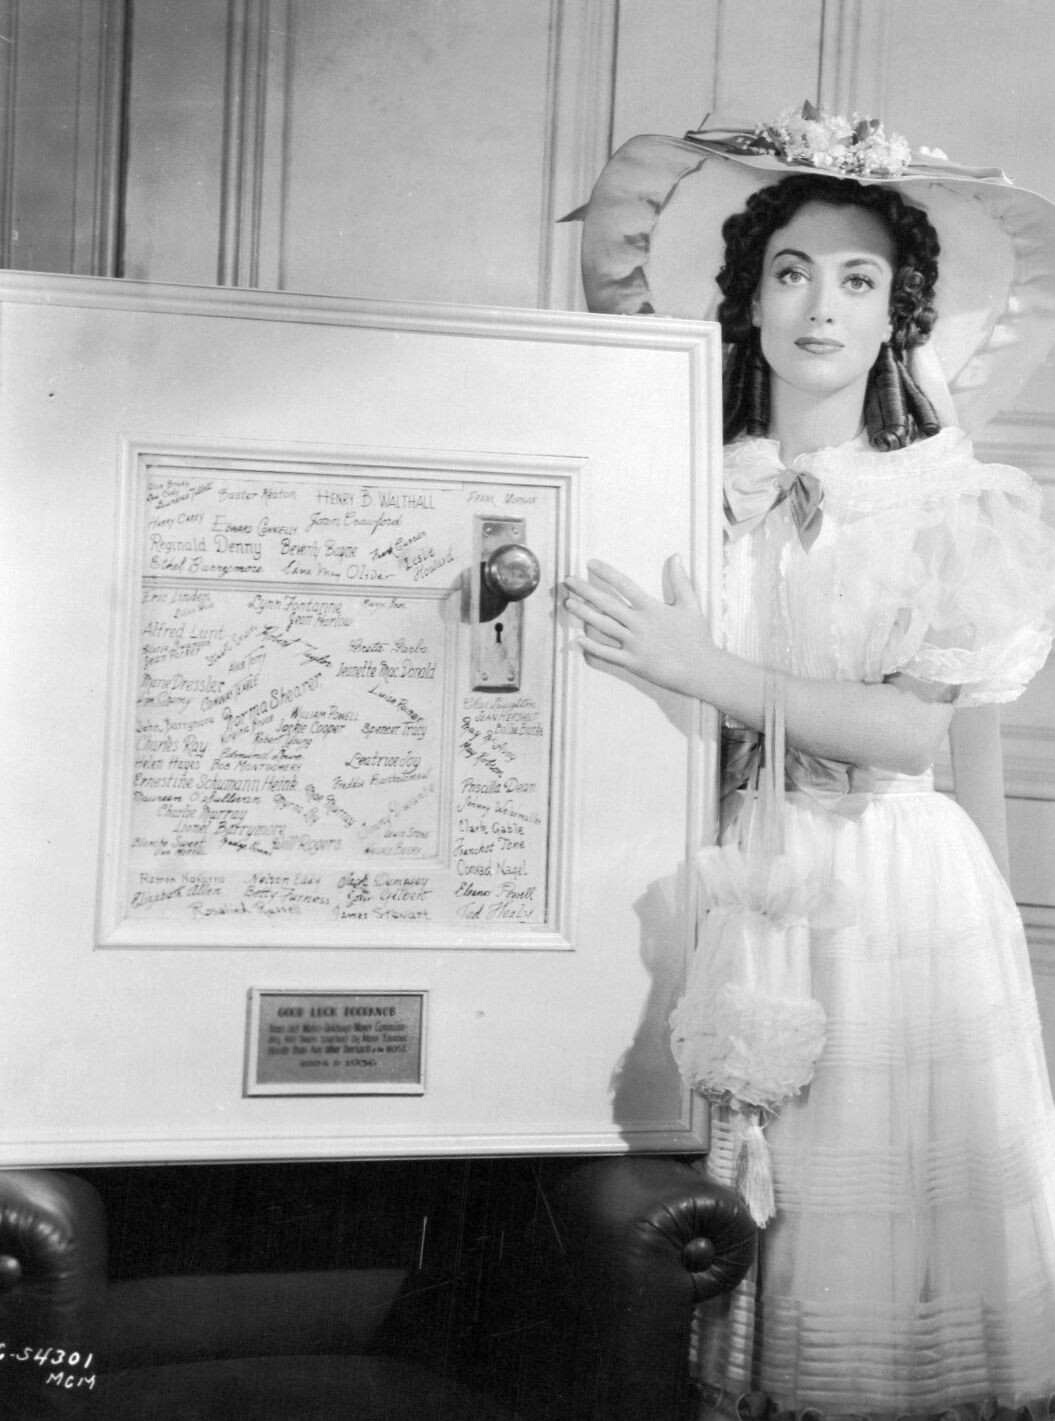 Buster Keaton
HENRY B WALTHALL
FRANK MORGAN
HARRY CAREY
EDWARD CONNELLY
Joan Crawford
Reginald Denny
Beverly Bayne
Frank Currier
Leslie Howard
Ethel Barrymore
Edna May Oliver
Eric Linden
Lynn Fontanne
Jean Harlow
Alfred Lunt
Robert Taylor
Greta Garbo
Jean Parker
Jeanette MacDonald
Marie Dressler
CONWAY TEARLE
Norma Shearer
Luise Rainer
Chas Laughton
JEAN HERSHOLT
John Barrymore
Virginia Bruce
WILLIAM POWELL
Jackie Cooper
Spencer Tracy
Billie Burke
Charles Ray
Robert Young
May Robson
Helen Hayes
Edmund Lowe
BOB MONTGOMERY
Beatrice Joy
Ernestine Schumann Heink
Freddie Bartholomew
Priscilla Dean
Maureen O'Sullivan
Myrna Loy
Mae Murray
Jimmy Durante
Johnny Weismuller
Charlie Murray
Lionel Barrymore
Lewis Stone
Clark Gable
Blanche Sweet
Will Rogers
WALLACE BEERY
Franchot Tone
Conrad Nagel
Ramon Novarro
Nelson Eddy
Jack Dempsey
Elizabeth Allen
Betty Furness
John Gilbert
Eleanor Powell
Rosalind Russell
James Stewart
Ted Healy
GOOD LUCK DOORKNOB
1924 to 1936
54301
MGM